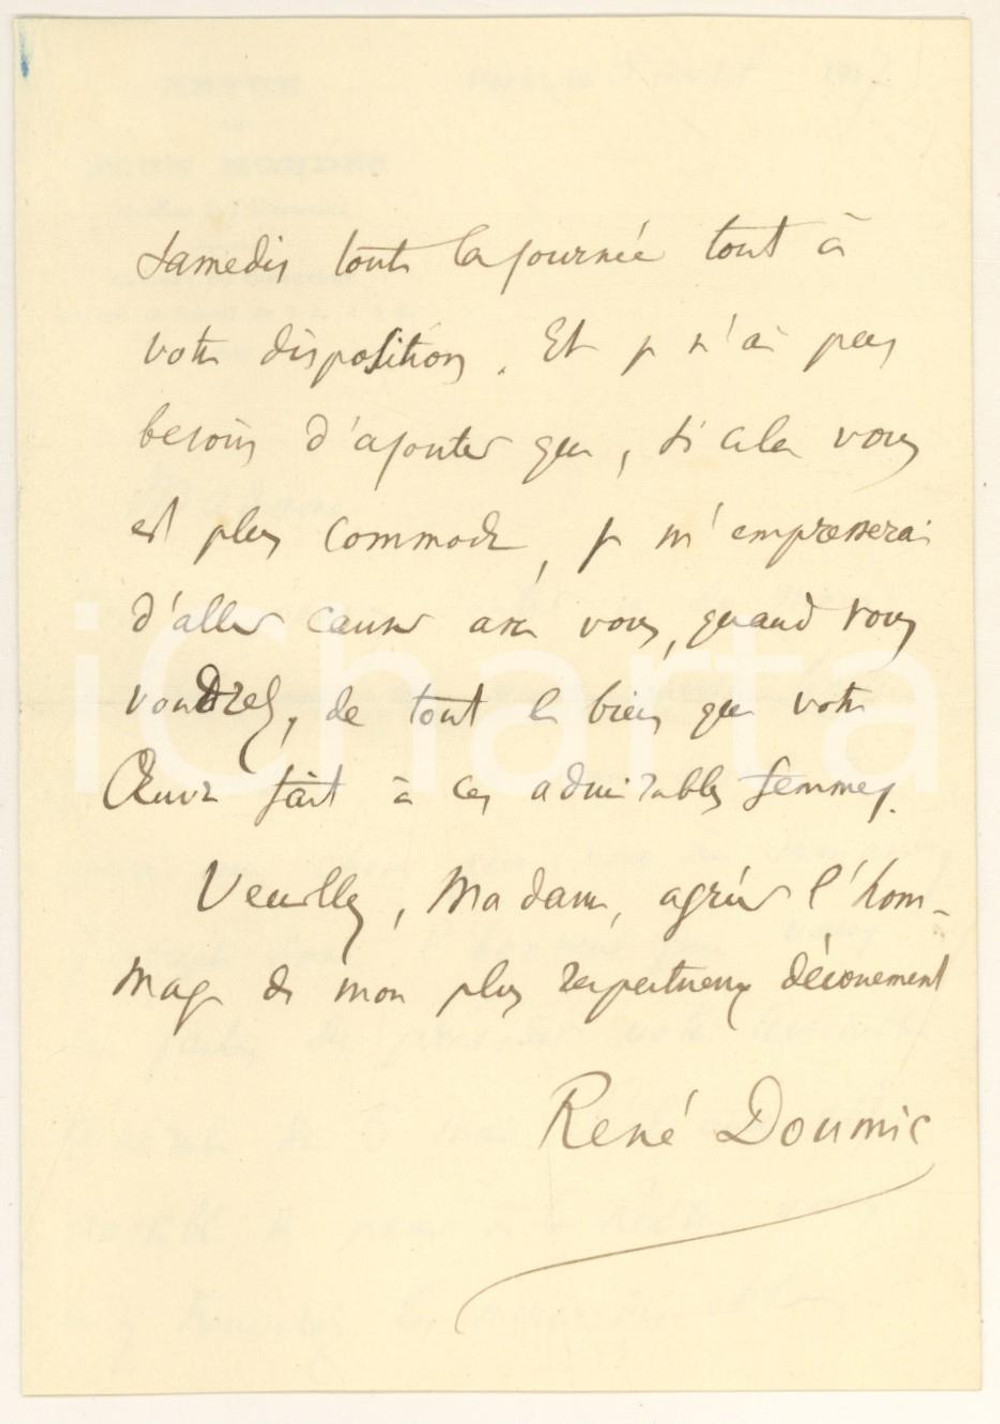 Samedi, toute la journée tout à
votre disposition. Et je n'ai pas
besoin d'ajouter que, si cela vous
est plus commode, je m'empresserai
d'aller causer avec vous, quand vous
voudrez, de tout le bien que votre
Œuvre fait à ces admirables femmes.
Veuillez, Madame, agréer l'hom-
mage de mon plus respectueux dévouement
René Doumic
iCharta